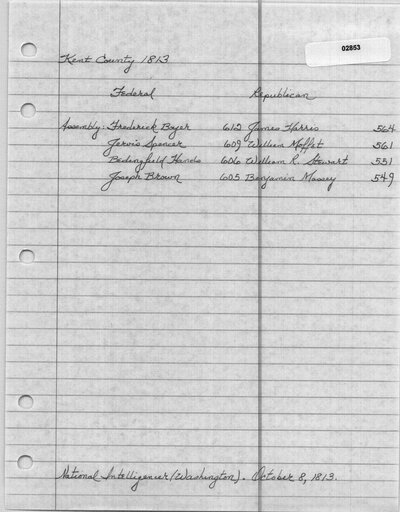 02853
Kent County 1813
Federal Republican
Assembly: Frederick Boyer 612 James Harris 564
Jervis Spencer 609 William Moffet 561
Bedingfield Hands 606 William R. Stewart 551
Joseph Brown 605 Benjamin Massey 549
National Intelligencer (Washington). October 8, 1813.